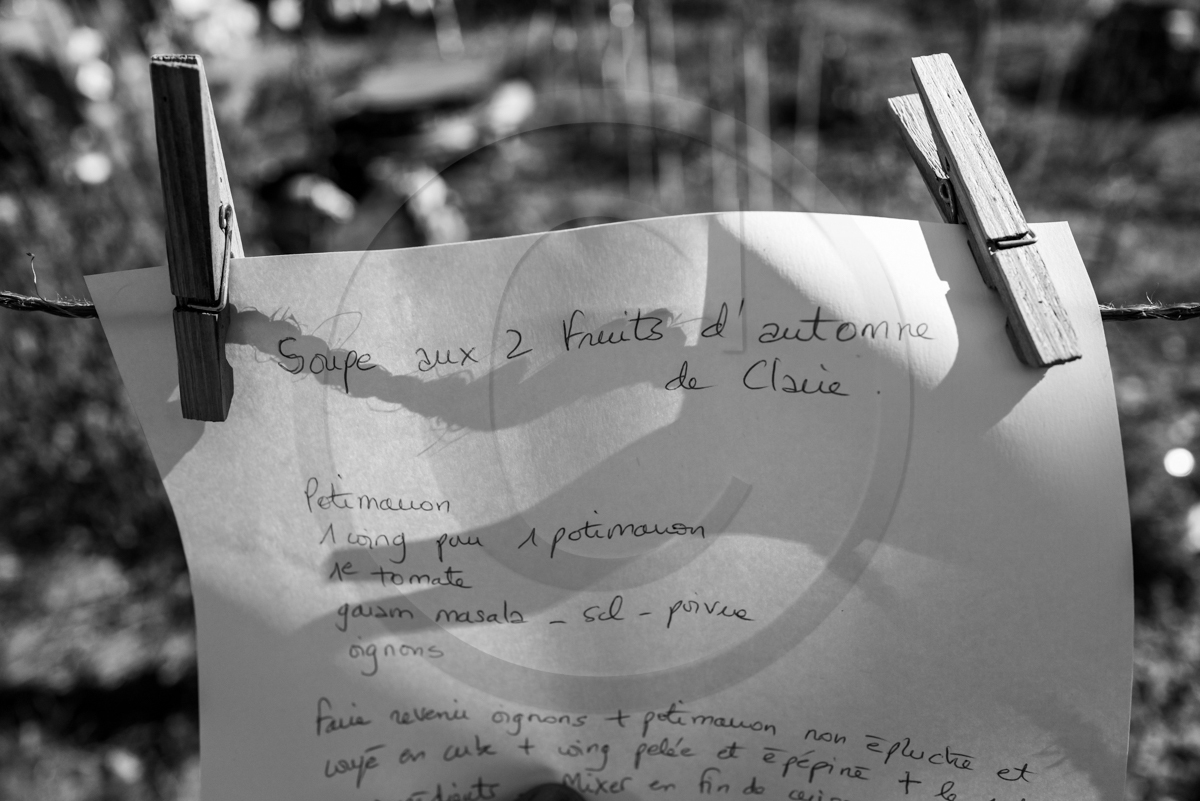 Soupe aux 2 fruits d'automne
de Claire.
Potimarron
1 coing pour 1 potimarron
1e tomate
garam masala - sel - poivre
oignons
Faire revenir oignons + potimarron non épluché et
coupé en cube + coing pelée et épépiné + le
Mixer en fin de